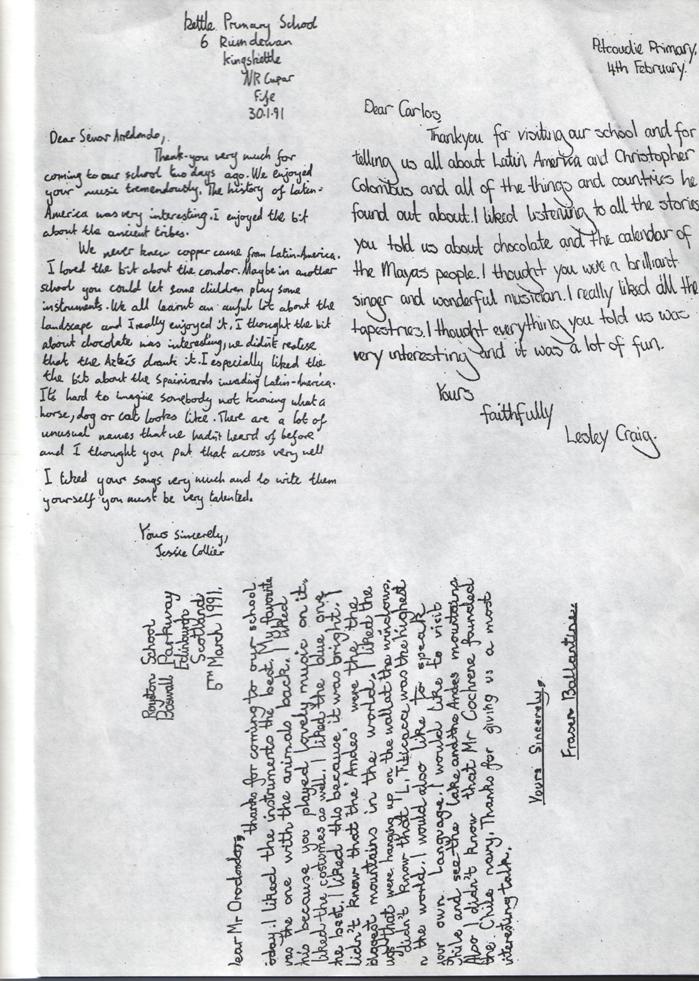 Kettle Primary School
6 Rumdewan
Kingskettle
NR Cupar
Fife
30.1.91
Dear Senor Arredondo,
Thank-you very much for
coming to our school two days ago. We enjoyed
your music tremendously. The history of Latin-
America was very interesting. I enjoyed the bit
about the ancient tribes.
We never knew copper came from Latin-America.
I loved the bit about the condor. Maybe in another
school you could let some children play some
instruments. We all learnt an awful lot about the
landscape and I really enjoyed it. I thought the bit
about chocolate was interesting, we didn't realise
that the Aztecs drank it. I especially liked the
the bit about the Spainivards invading Latin-America.
It's hard to imagine somebody not knowing what a
horse, dog or cat looks like. There are a lot of
unusual names that we hadn't heard of before
and I thought you put that across very well
I liked your songs very much and to write them
yourself you must be very talented.
Yours Sincerely,
Jessie Collier
Pitcoudie Primary,
4th February.
Dear Carlos,
Thankyou for visiting our school and for
telling us all about Latin America and Christopher
Colombus and all of the things and countries he
found out about. I liked listening to all the stories
you told us about chocolate and the calendar of
the Mayas people. I thought you were a brilliant
singer and wonderful musician. I really liked all the
tapestries. I thought everything you told us was
very interesting and it was a lot of fun.
Yours
faithfully
Lesley Craig.
Royston School
Boswall Parkway
Edinburgh
Scotland
5th March 1991.
ear Mr Orodondo,
thanks for coming to our school
oday. I liked the instruments the best. My favorite
was the one with the animals back. I liked
his because you played lovely music on it.
liked the costumes as well. I liked the blue one
he best. I liked this because it was bright. I
didn't know that the 'Andes' were the the
biggest mountains in the world. I liked the
that were hanging up on the wall at the windows.
didn't know that 'L. Titicaca' was the highest
n the world. I would also like to speak
your own language. I would like to visit
hile and see the lake and the Andes mountains.
Also I didn't know that Mr Cochrene founded
the Chile navy. Thanks for giving us a most
interesting talk.
Yours Sincerely,
Fraser Ballantine.